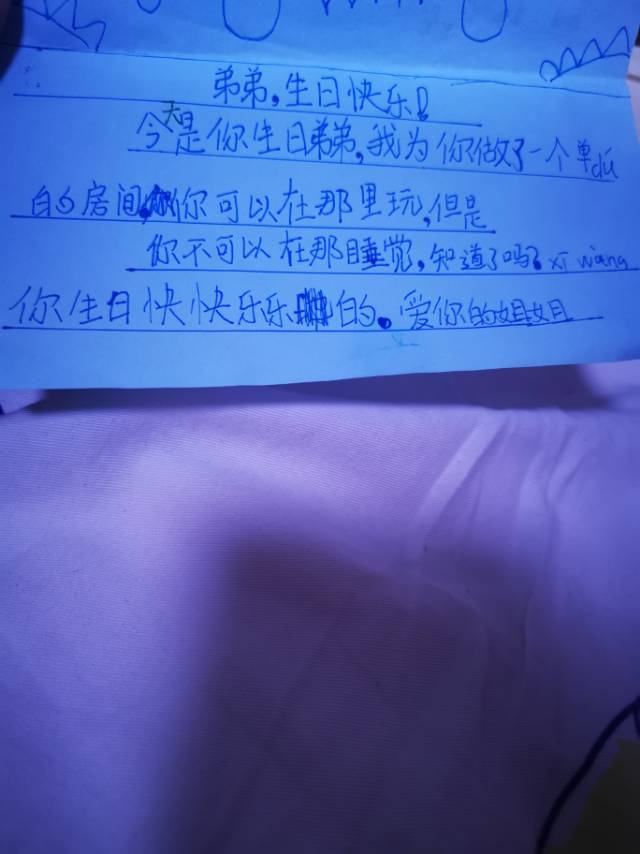 弟弟,生日快乐!
今天是你生日弟弟,我为你做了一个单dú
的房间,你可以在那里玩,但是
你不可以在那睡觉,知道了吗?xī wàng
你生日快快乐乐的。爱你的姐姐